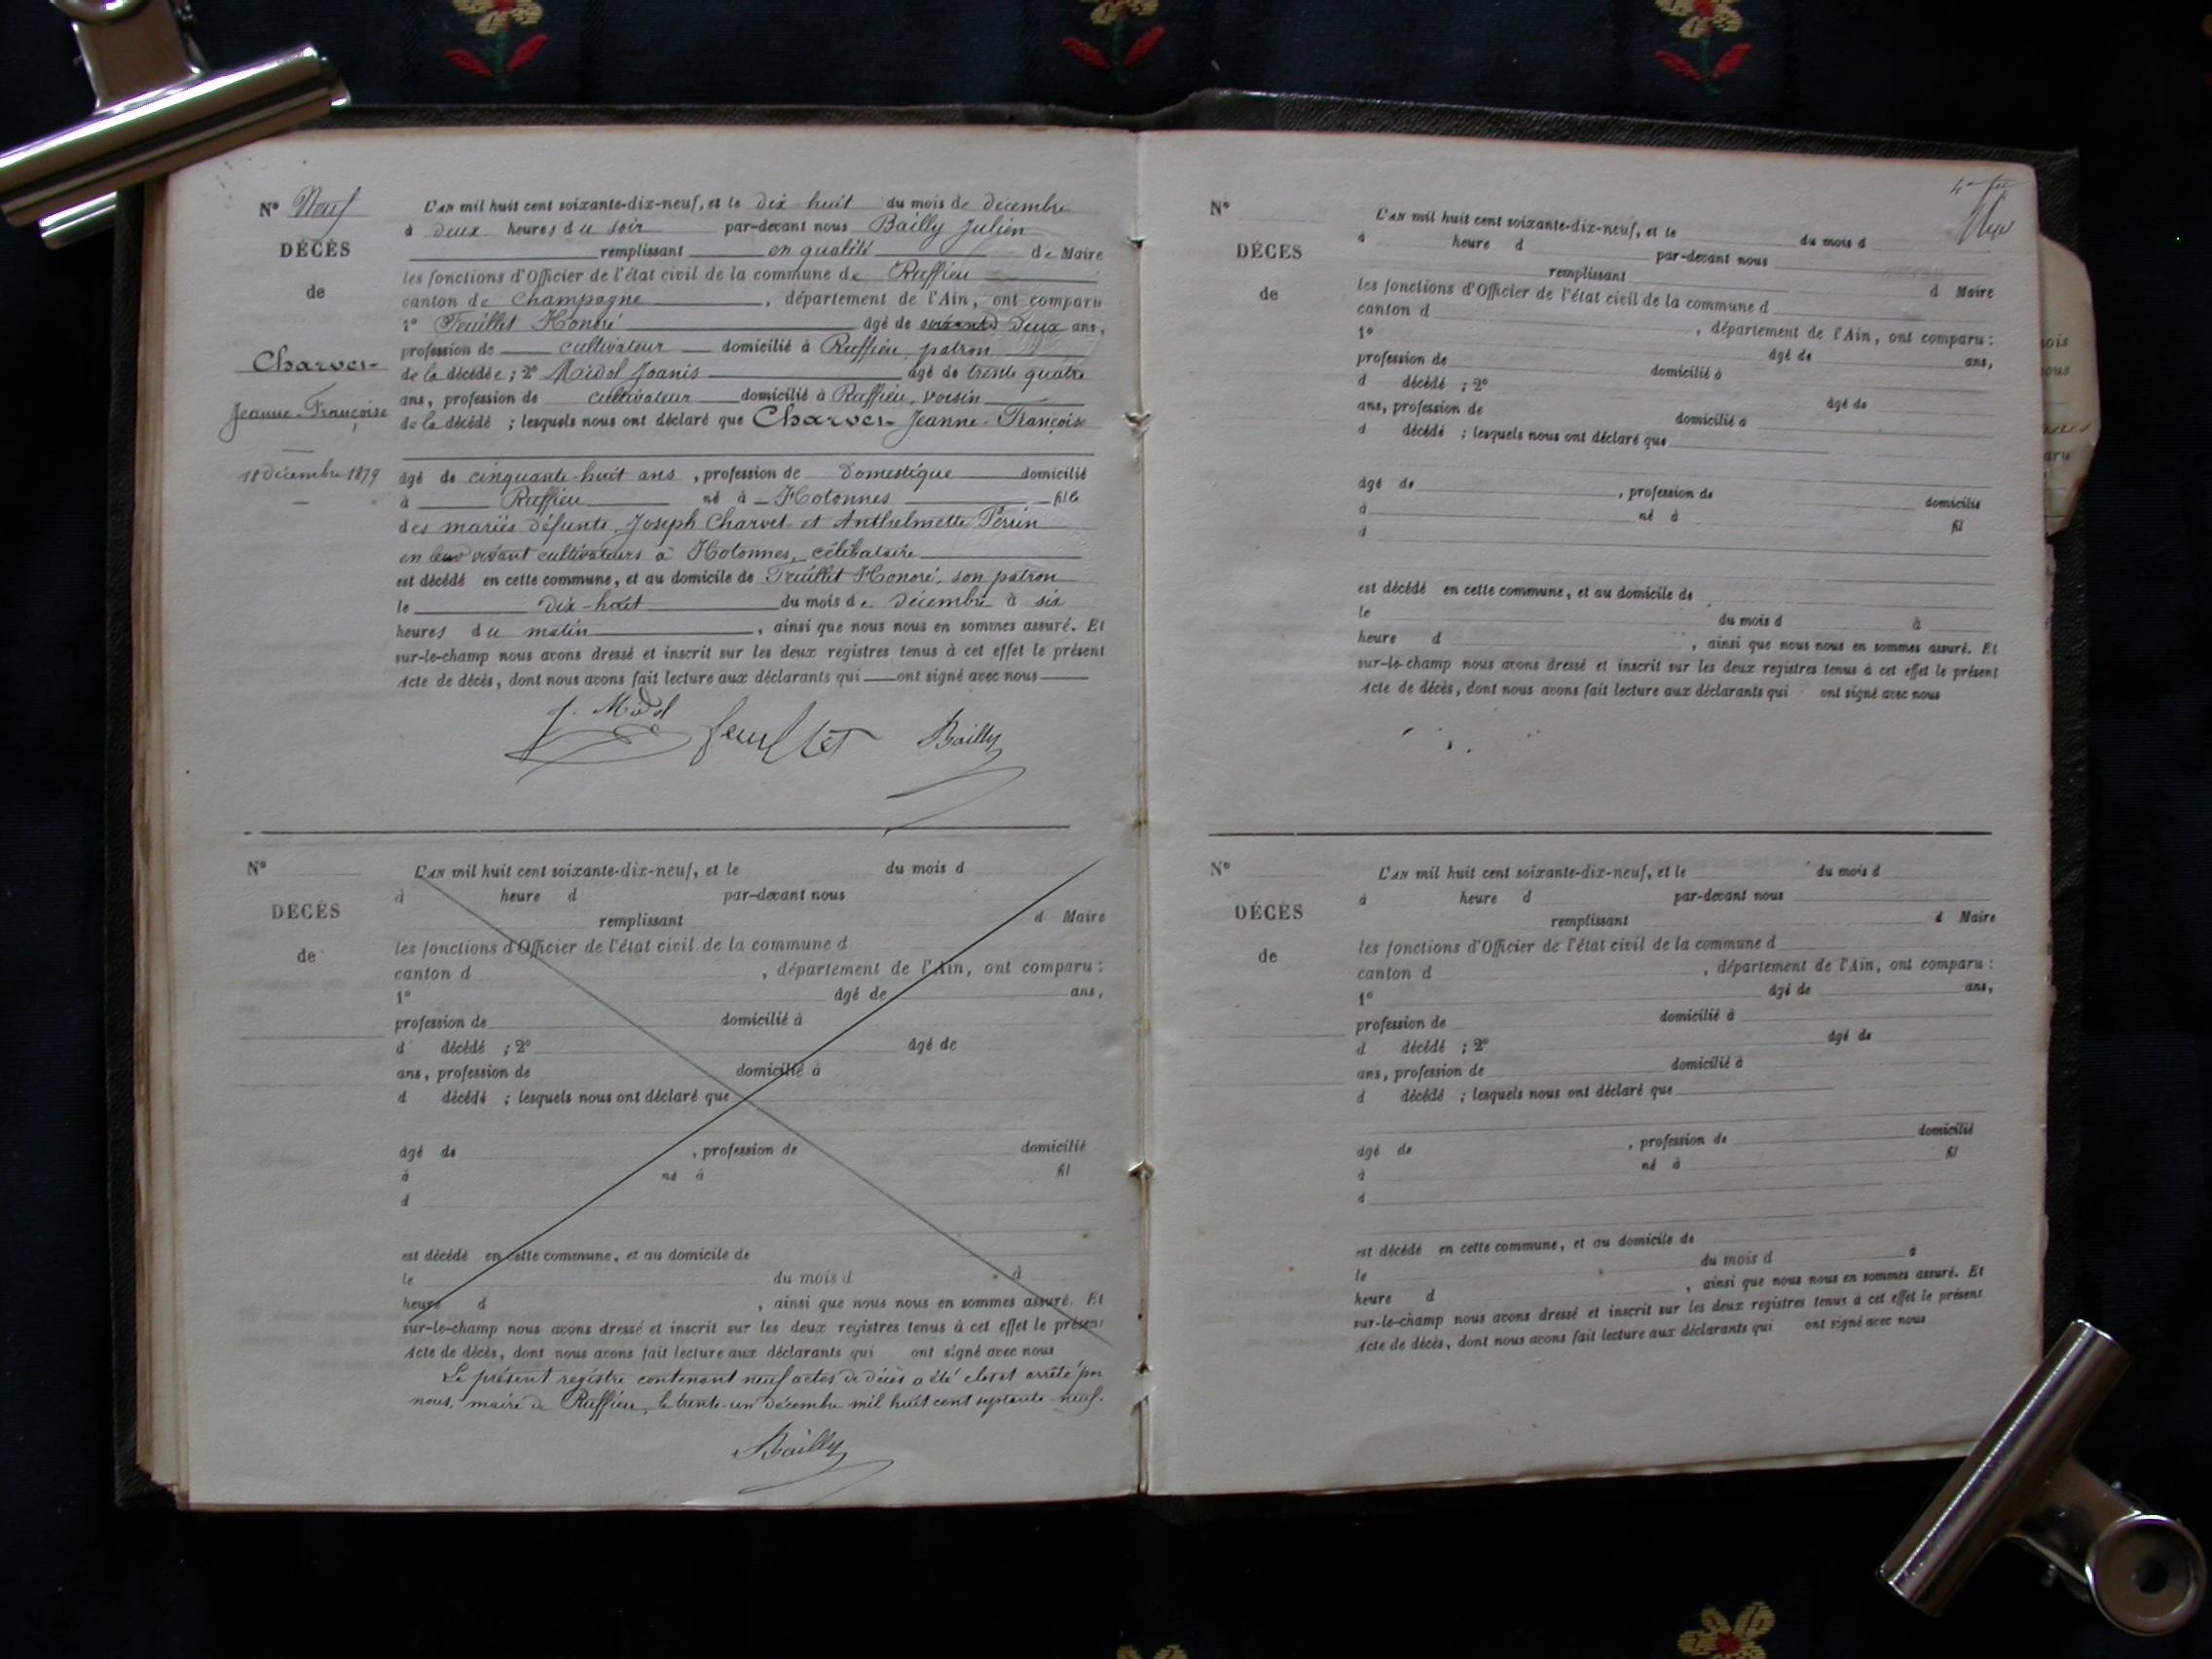 N° Neuf
DÉCÈS
de
Charvet
Jeanne-Françoise
18 décembre 1879
L'AN mil huit cent soixante-dix-neuf, et le dix huit du mois de décembre
à deux heures du soir par-devant nous Bailly Julien
remplissant en qualité de Maire
les fonctions d'Officier de l'état civil de la commune de Ruffieu
canton de Champagne, département de l'Ain, ont comparu
1° Feuillet Honoré âgé de deux ans,
profession de cultivateur domicilié à Ruffieu, patron
de la décédée; 2° Midol Joanis âgé de trente quatre
ans, profession de cultivateur domicilié à Ruffieu, voisin
de la décédé ; lesquels nous ont déclaré que Charvet Jeanne-Françoise
âgé de cinquante-huit ans, profession de domestique domicilié
à Ruffieu né à Hotonnes fille
des mariés défunts Joseph Charvet et Anthelmette Perrin
en leur vivant cultivateurs à Hotonnes, célibataire
est décédé en cette commune, et au domicile de Feuillet Honoré, son patron
le dix-huit du mois de décembre à six
heures du matin, ainsi que nous nous en sommes assuré. Et
sur-le-champ nous avons dressé et inscrit sur les deux registres tenus à cet effet le présent
Acte de décès, dont nous avons fait lecture aux déclarants qui ont signé avec nous
J. Midol feuillet Bailly
N°
DÉCÈS
de
L'AN mil huit cent soixante-dix-neuf, et le du mois d
à heure d par-devant nous
remplissant d Maire
les fonctions d'Officier de l'état civil de la commune d
canton d , département de l'Ain, ont comparu :
1° âgé de ans,
profession de domicilié à
d décédé ; 2° âgé de
ans, profession de domicilié à
d décédé ; lesquels nous ont déclaré que
âgé de , profession de domicilié
à né à fil
d
est décédé en cette commune, et au domicile de
le du mois d à
heure d , ainsi que nous nous en sommes assuré. Et
sur-le-champ nous avons dressé et inscrit sur les deux registres tenus à cet effet le présent
Acte de décès, dont nous avons fait lecture aux déclarants qui ont signé avec nous
Le présent registre contenant neuf actes de décès a été clos et arrêté par
nous, maire de Ruffieu, le trente-un décembre mil huit cent septante-neuf.
Bailly
N°
DÉCÈS
de
L'AN mil huit cent soixante-dix-neuf, et le du mois d
à heure d par-devant nous
remplissant d Maire
les fonctions d'Officier de l'état civil de la commune d
canton d , département de l'Ain, ont comparu :
1° âgé de ans,
profession de domicilié à
d décédé ; 2° âgé de
ans, profession de domicilié à
d décédé ; lesquels nous ont déclaré que
âgé de , profession de domicilié
à né à fil
d
est décédé en cette commune, et au domicile de
le du mois d à
heure d , ainsi que nous nous en sommes assuré. Et
sur-le-champ nous avons dressé et inscrit sur les deux registres tenus à cet effet le présent
Acte de décès, dont nous avons fait lecture aux déclarants qui ont signé avec nous
N°
DÉCÈS
de
L'AN mil huit cent soixante-dix-neuf, et le du mois d
à heure d par-devant nous
remplissant d Maire
les fonctions d'Officier de l'état civil de la commune d
canton d , département de l'Ain, ont comparu :
1° âgé de ans,
profession de domicilié à
d décédé ; 2° âgé de
ans, profession de domicilié à
d décédé ; lesquels nous ont déclaré que
âgé de , profession de domicilié
à né à fil
d
est décédé en cette commune, et au domicile de
le du mois d à
heure d , ainsi que nous nous en sommes assuré. Et
sur-le-champ nous avons dressé et inscrit sur les deux registres tenus à cet effet le présent
Acte de décès, dont nous avons fait lecture aux déclarants qui ont signé avec nous